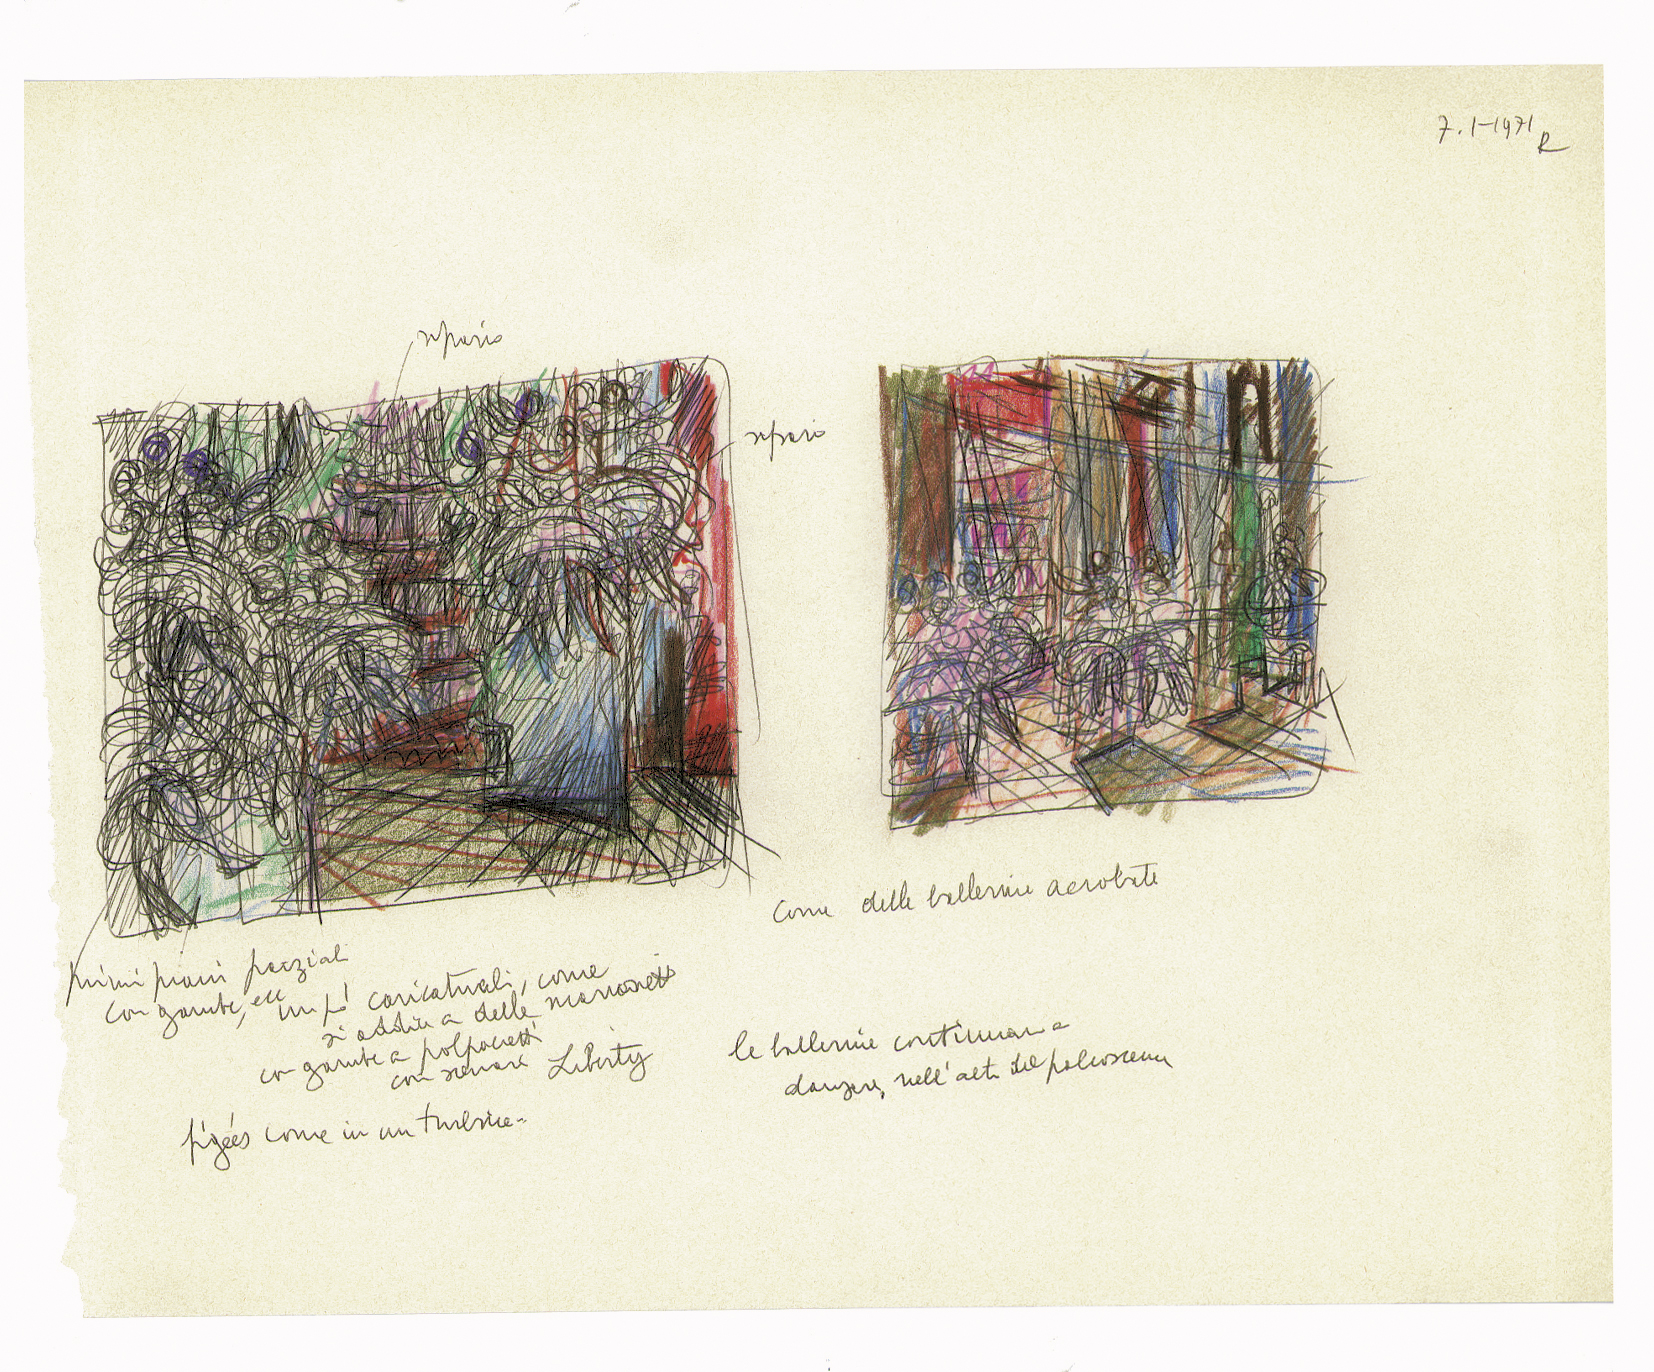 7.1-1971
R
sipario
sipario
come delle ballerine acrobate
primi piani parziali
con gambe, ecc un pò caricaturali, come
si addice a delle marionette
con gambe a polpacetti
con Liberty
figées come in un turbine -
le ballerine continuano a
danzare, nell' del palcoscenico